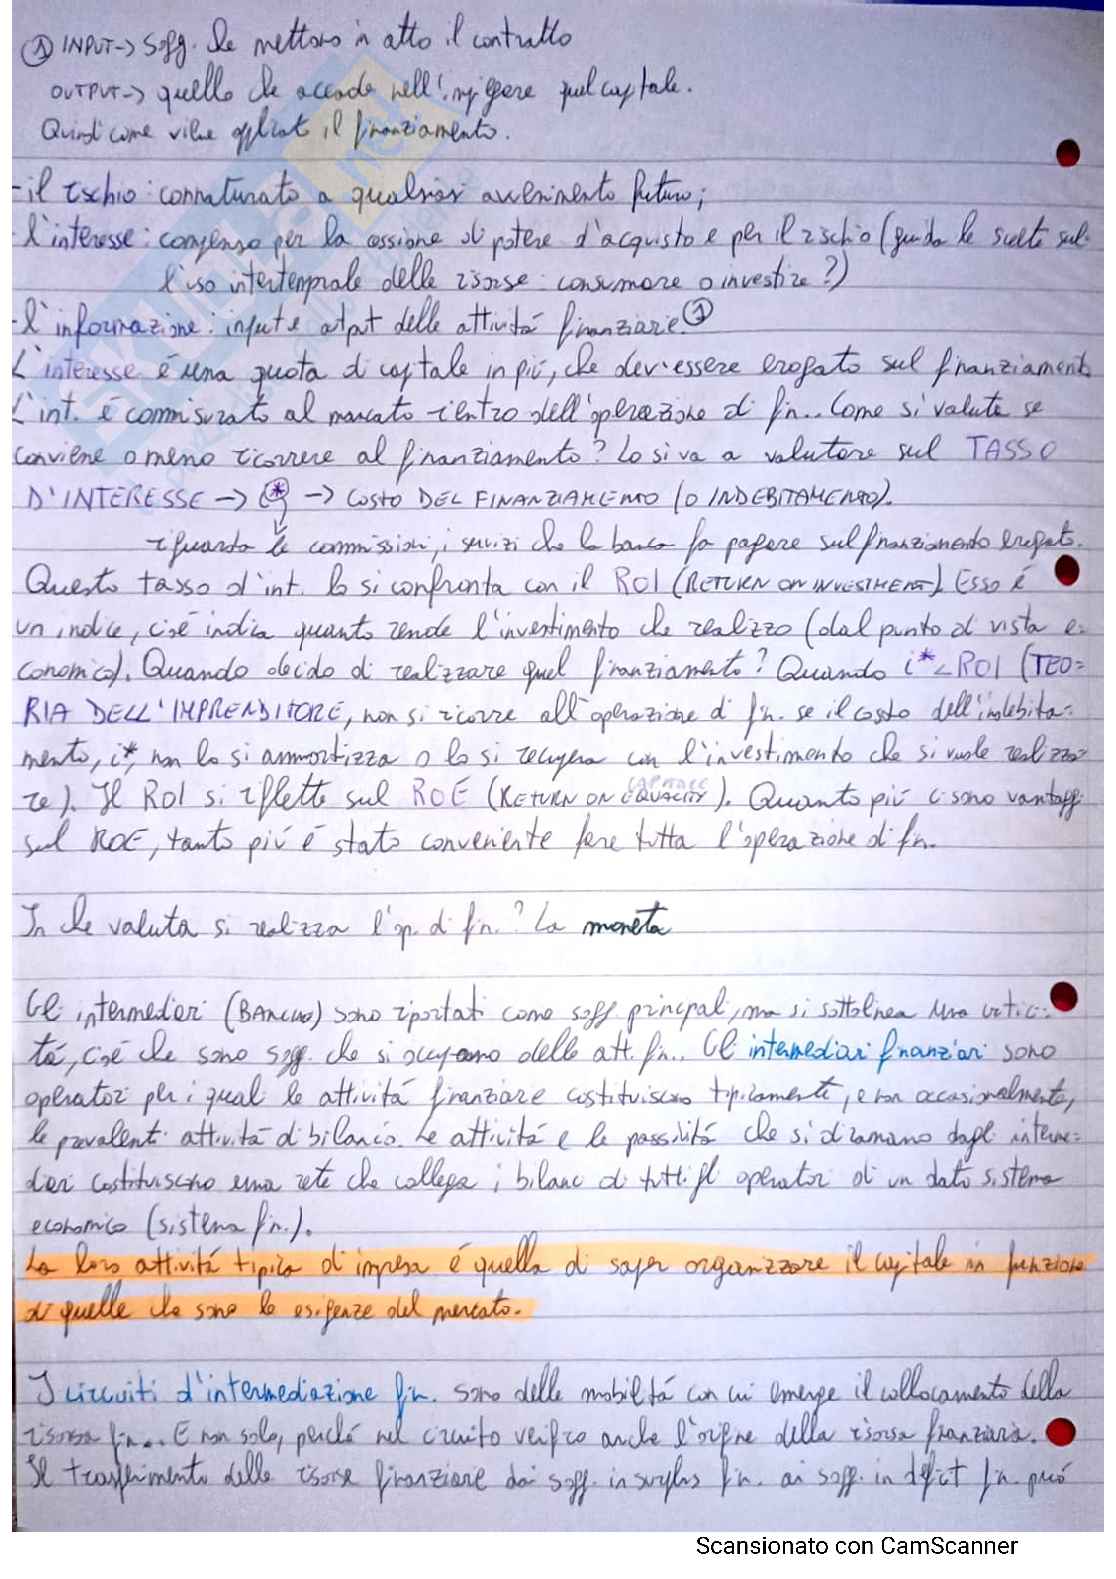 ① INPUT-> Sogg. che mettono in atto il contratto
OUTPUT-> quello che accade nell'impiegare quel capitale.
Quindi come viene applicato il finanziamento.
- il rischio: connaturato a qualsiasi avvenimento futuro;
- l'interesse: compenso per la cessione di potere d'acquisto e per il rischio (guida le scelte sul-
l'uso intertemporale delle risorse: consumare o investire?)
- l'informazione: input e output delle attività finanziarie.①
L'interesse é una quota di capitale in piú, che dev'essere erogato sul finanziamento
L'int. é commisurato al mancato rientro dell'operazione di fin.. Come si valuta se
conviene o meno ricorrere al finanziamento? Lo si va a valutare sul TASSO
D'INTERESSE -> i* -> COSTO DEL FINANZIAMENTO (O INDEBITAMENTO).
riguarda le commissioni, i servizi che la banca fa pagare sul finanziamento erogato.
Questo tasso d'int. lo si confronta con il ROI (RETURN ON INVESTMENT). Esso é
un indice, cioé indica quanto rende l'investimento che realizzo (dal punto di vista e-
conomico). Quando decido di realizzare quel finanziamento? Quando i*<ROI (TEO=
RIA DELL'IMPRENDITORE, non si ricorre all'operazione di fin. se il costo dell'indebita=
mento, i*, non lo si ammortizza o lo si recupera con l'investimento che si vuole realizza=
re). Il ROI si riflette sul ROE (RETURN ON EQUALITY). Quanto piú ci sono vantaggi
CAPITALE
sul ROE, tanto piú é stato conveniente fare tutta l'operazione di fin.
In che valuta si realizza l'op. di fin.? La moneta
Gli intermediari (BANCHE) sono riportati come sogg. principali, ma si sottolinea una critici=
tá, cioé che sono sogg. che si occupano delle att. fin.. Gli intermediari finanziari sono
operatori per i quali le attivitá finanziarie costituiscono tipicamente, e non occasionalmente,
le prevalenti attivitá di bilancio. Le attivitá e le passivitá che si diramano dagli interme=
diari costituiscono una rete che collega i bilanci di tutti gli operatori di un dato sistema
economico (sistema fin.).
La loro attivitá tipica di impresa é quella di saper organizzare il capitale in funzione
di quelle che sono le esigenze del mercato.
I circuiti d'intermediazione fin. sono delle mobilitá con cui emerge il collocamento della
risorsa fin... E non solo, perché nel circuito verifico anche l'origine della risorsa finanziaria.
Il trasferimento delle risorse finanziarie dai sogg. in surplus fin. ai sogg. in deficit fin. puó
Scansionato con CamScanner